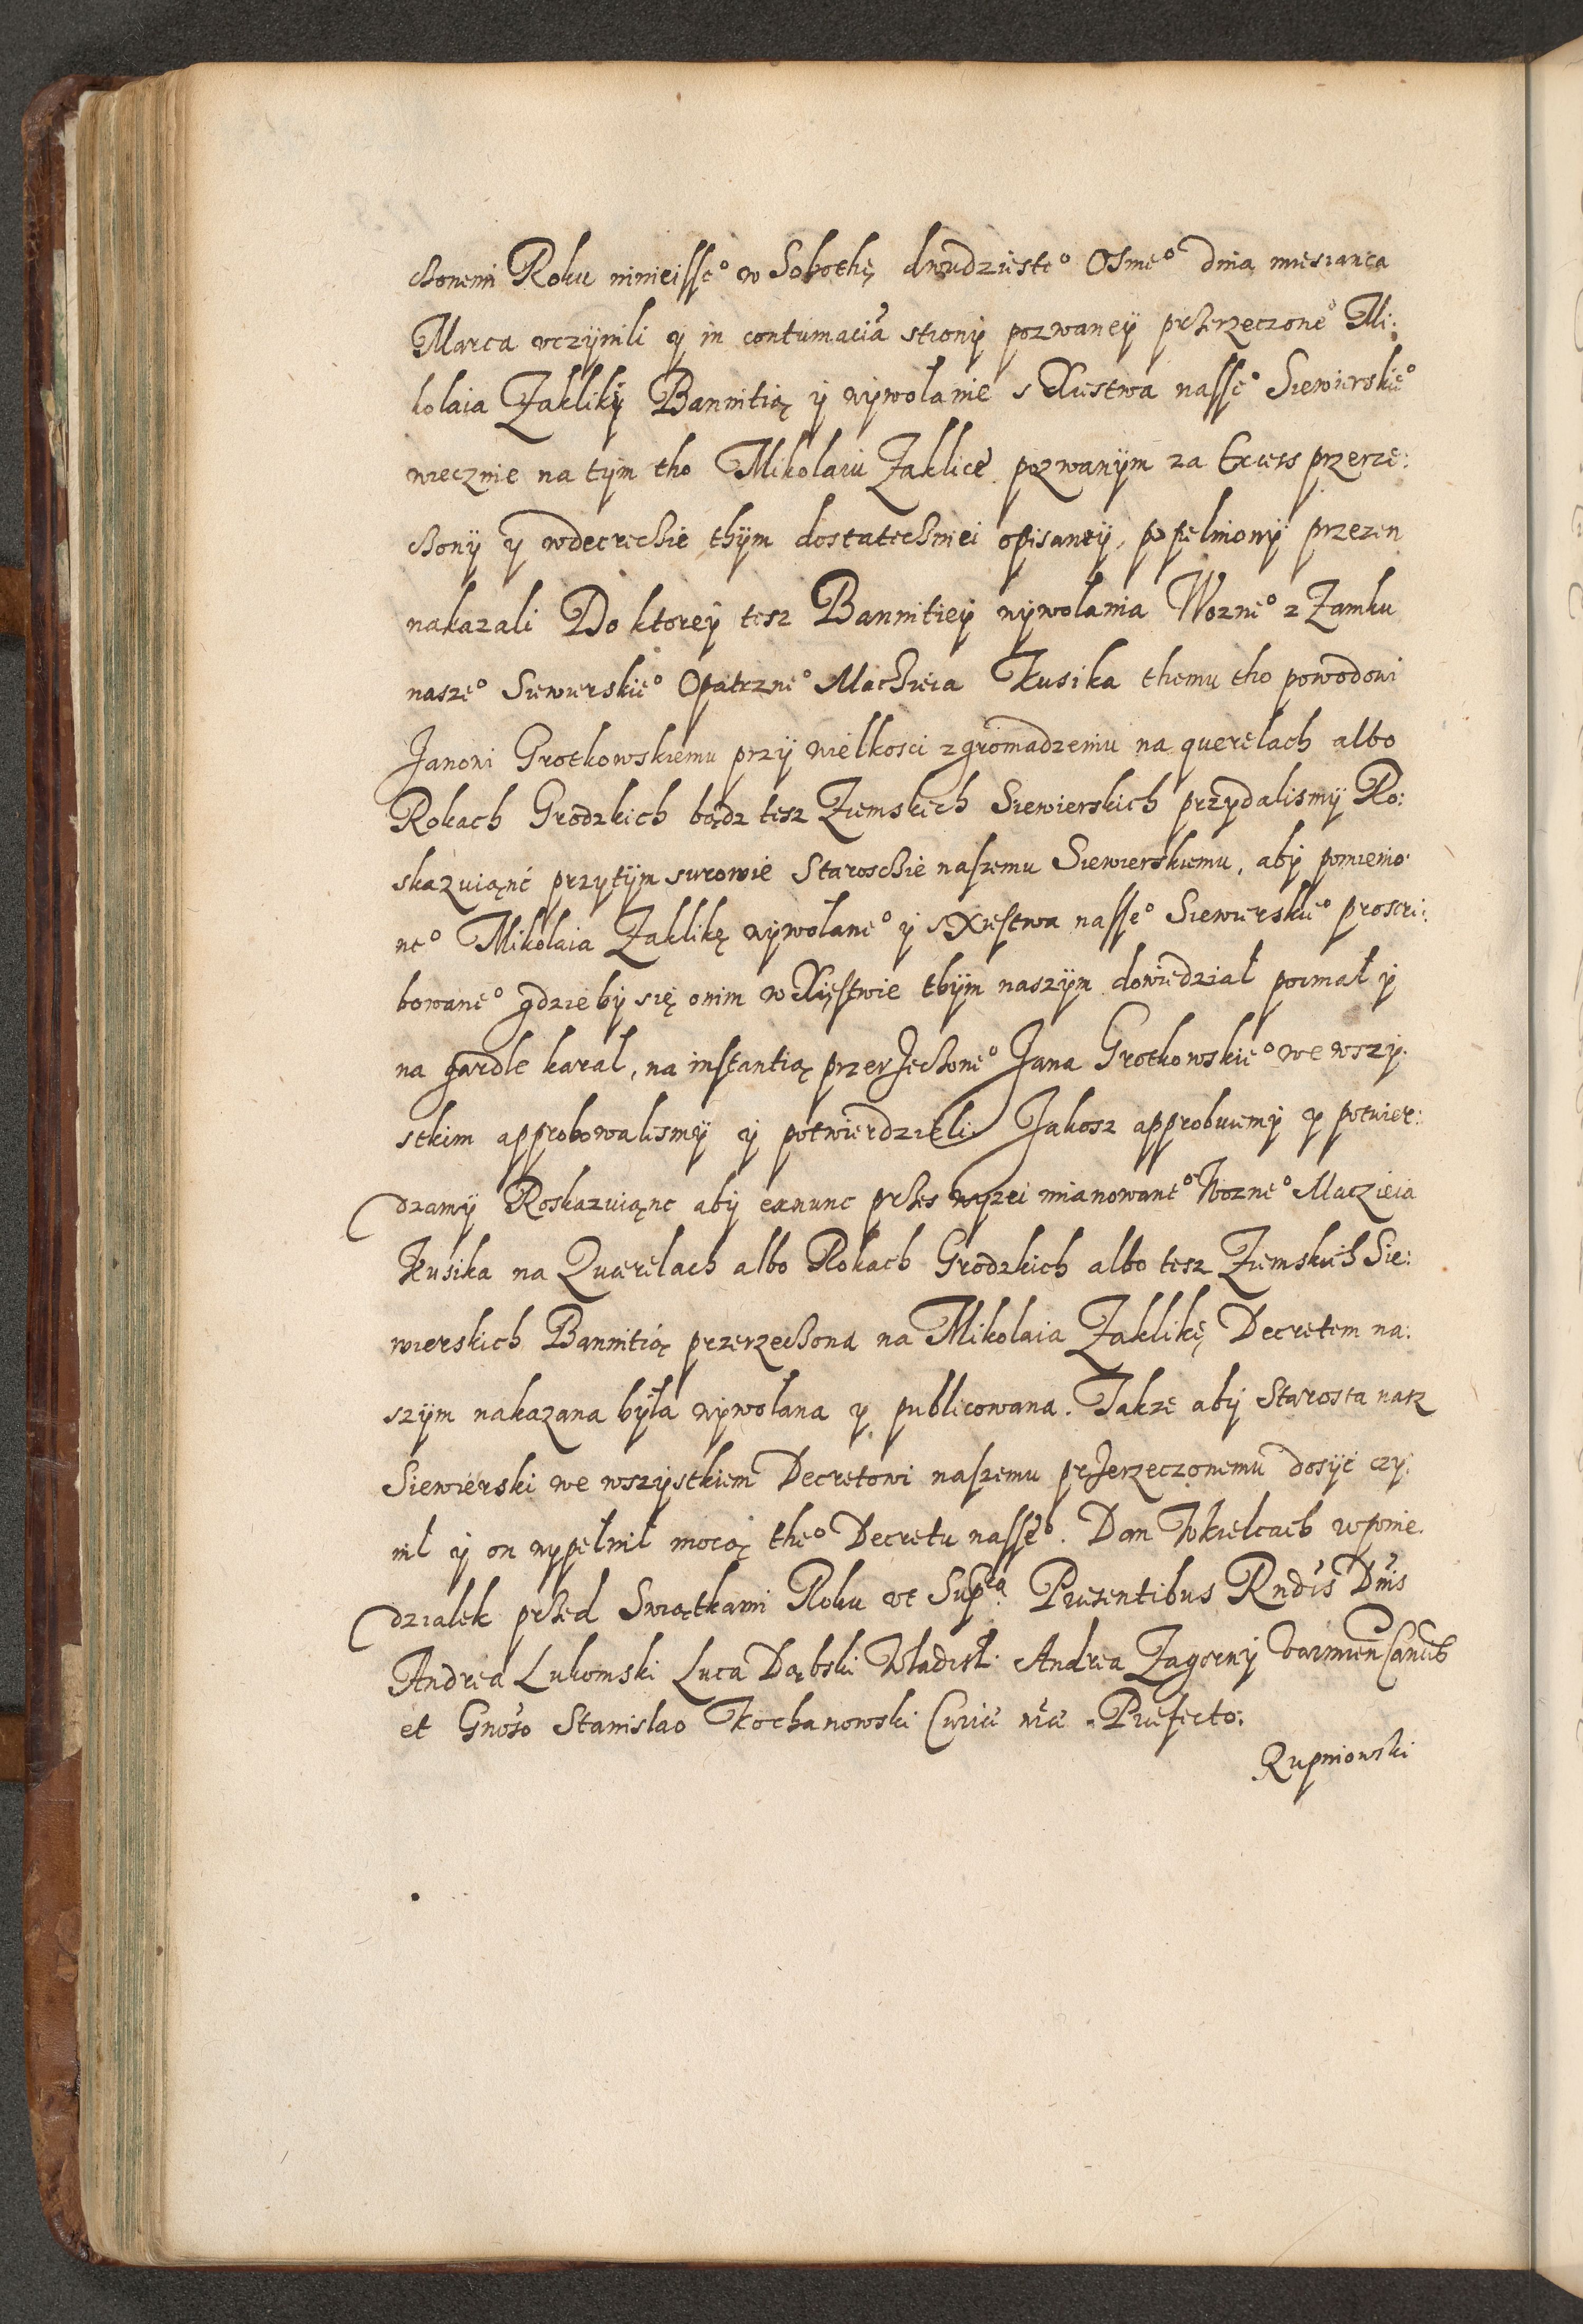 chonemi Roku ninieisse° w Sobothę dwudzieste° Osme° dnia miesianca
Marca uczynili y in contumacia strony pozwaney przerzeczone° Mi:
kolaia Zakliky Bannitią y wywołanie s Xiestwa nasse° Siewierskie°
wiecznie na tym tho Mikolaiu Zaklice pozwanym za Excess przerze:
chony y wdecrechie thym dostatechniei opisanny, popełniony przezen
nakazali Do ktorey tesz Bannitiey wywołania Wozne° z Zamku
nasze° Siewierskie° Opatrzne° Machieia Kusika themu tho powodowi
Janowi Grotkowskiemu przy wielkosci zgromadzeniu na querelach albo
Rokach Grodzkich bądz tesz Ziemskich Siewierskich przydalismy Ro:
skazuiąnć przytym surowie Staroschie naszemu Siewierskiemu, aby pomienio:
ne° Mikolaia Zaklikę wywołane° y s Xiestwa nasse° Siewierskie° proscri:
bowane° gdzieby się onim w Xięstwie thym naszym dowiedział poimał y
na gardle karał, na instantią przerzechone° Jana Grotkowskie° we wszy:
stkim approbowalismy y potwierdzieli. Jakosz approbuiemy y potwier:
dzamy Roskazuiąnc aby exnunc przes wyzei mianowane° Wozne° Maczieia
Kusika na Querelach albo Rokach Grodzkich albo tesz Ziemskich Sie:
wierskich Bannitią przerzechona na Mikolaia Zaklikę Decretem na:
szym nakazana była wywołana y publicowana. Takze aby Starosta nasz
Siewierski we wszystkiem Decretowi naszemu przerzeczonemu dosyć czy:
nił y on wypełnił mocą the° Decretu nasse°. Dan Wkielcach wponie.
dzialek przed Swiątkami Roku ut Supra Presentibus Rndis Dnis
Andrea Lukomski Luca Dąbski Wladisl: Andrea Zagorny Varmien Cancb
et Gnoso Stanislao Kochanowski Curiæ nræ Prefecto.
Rupniowski